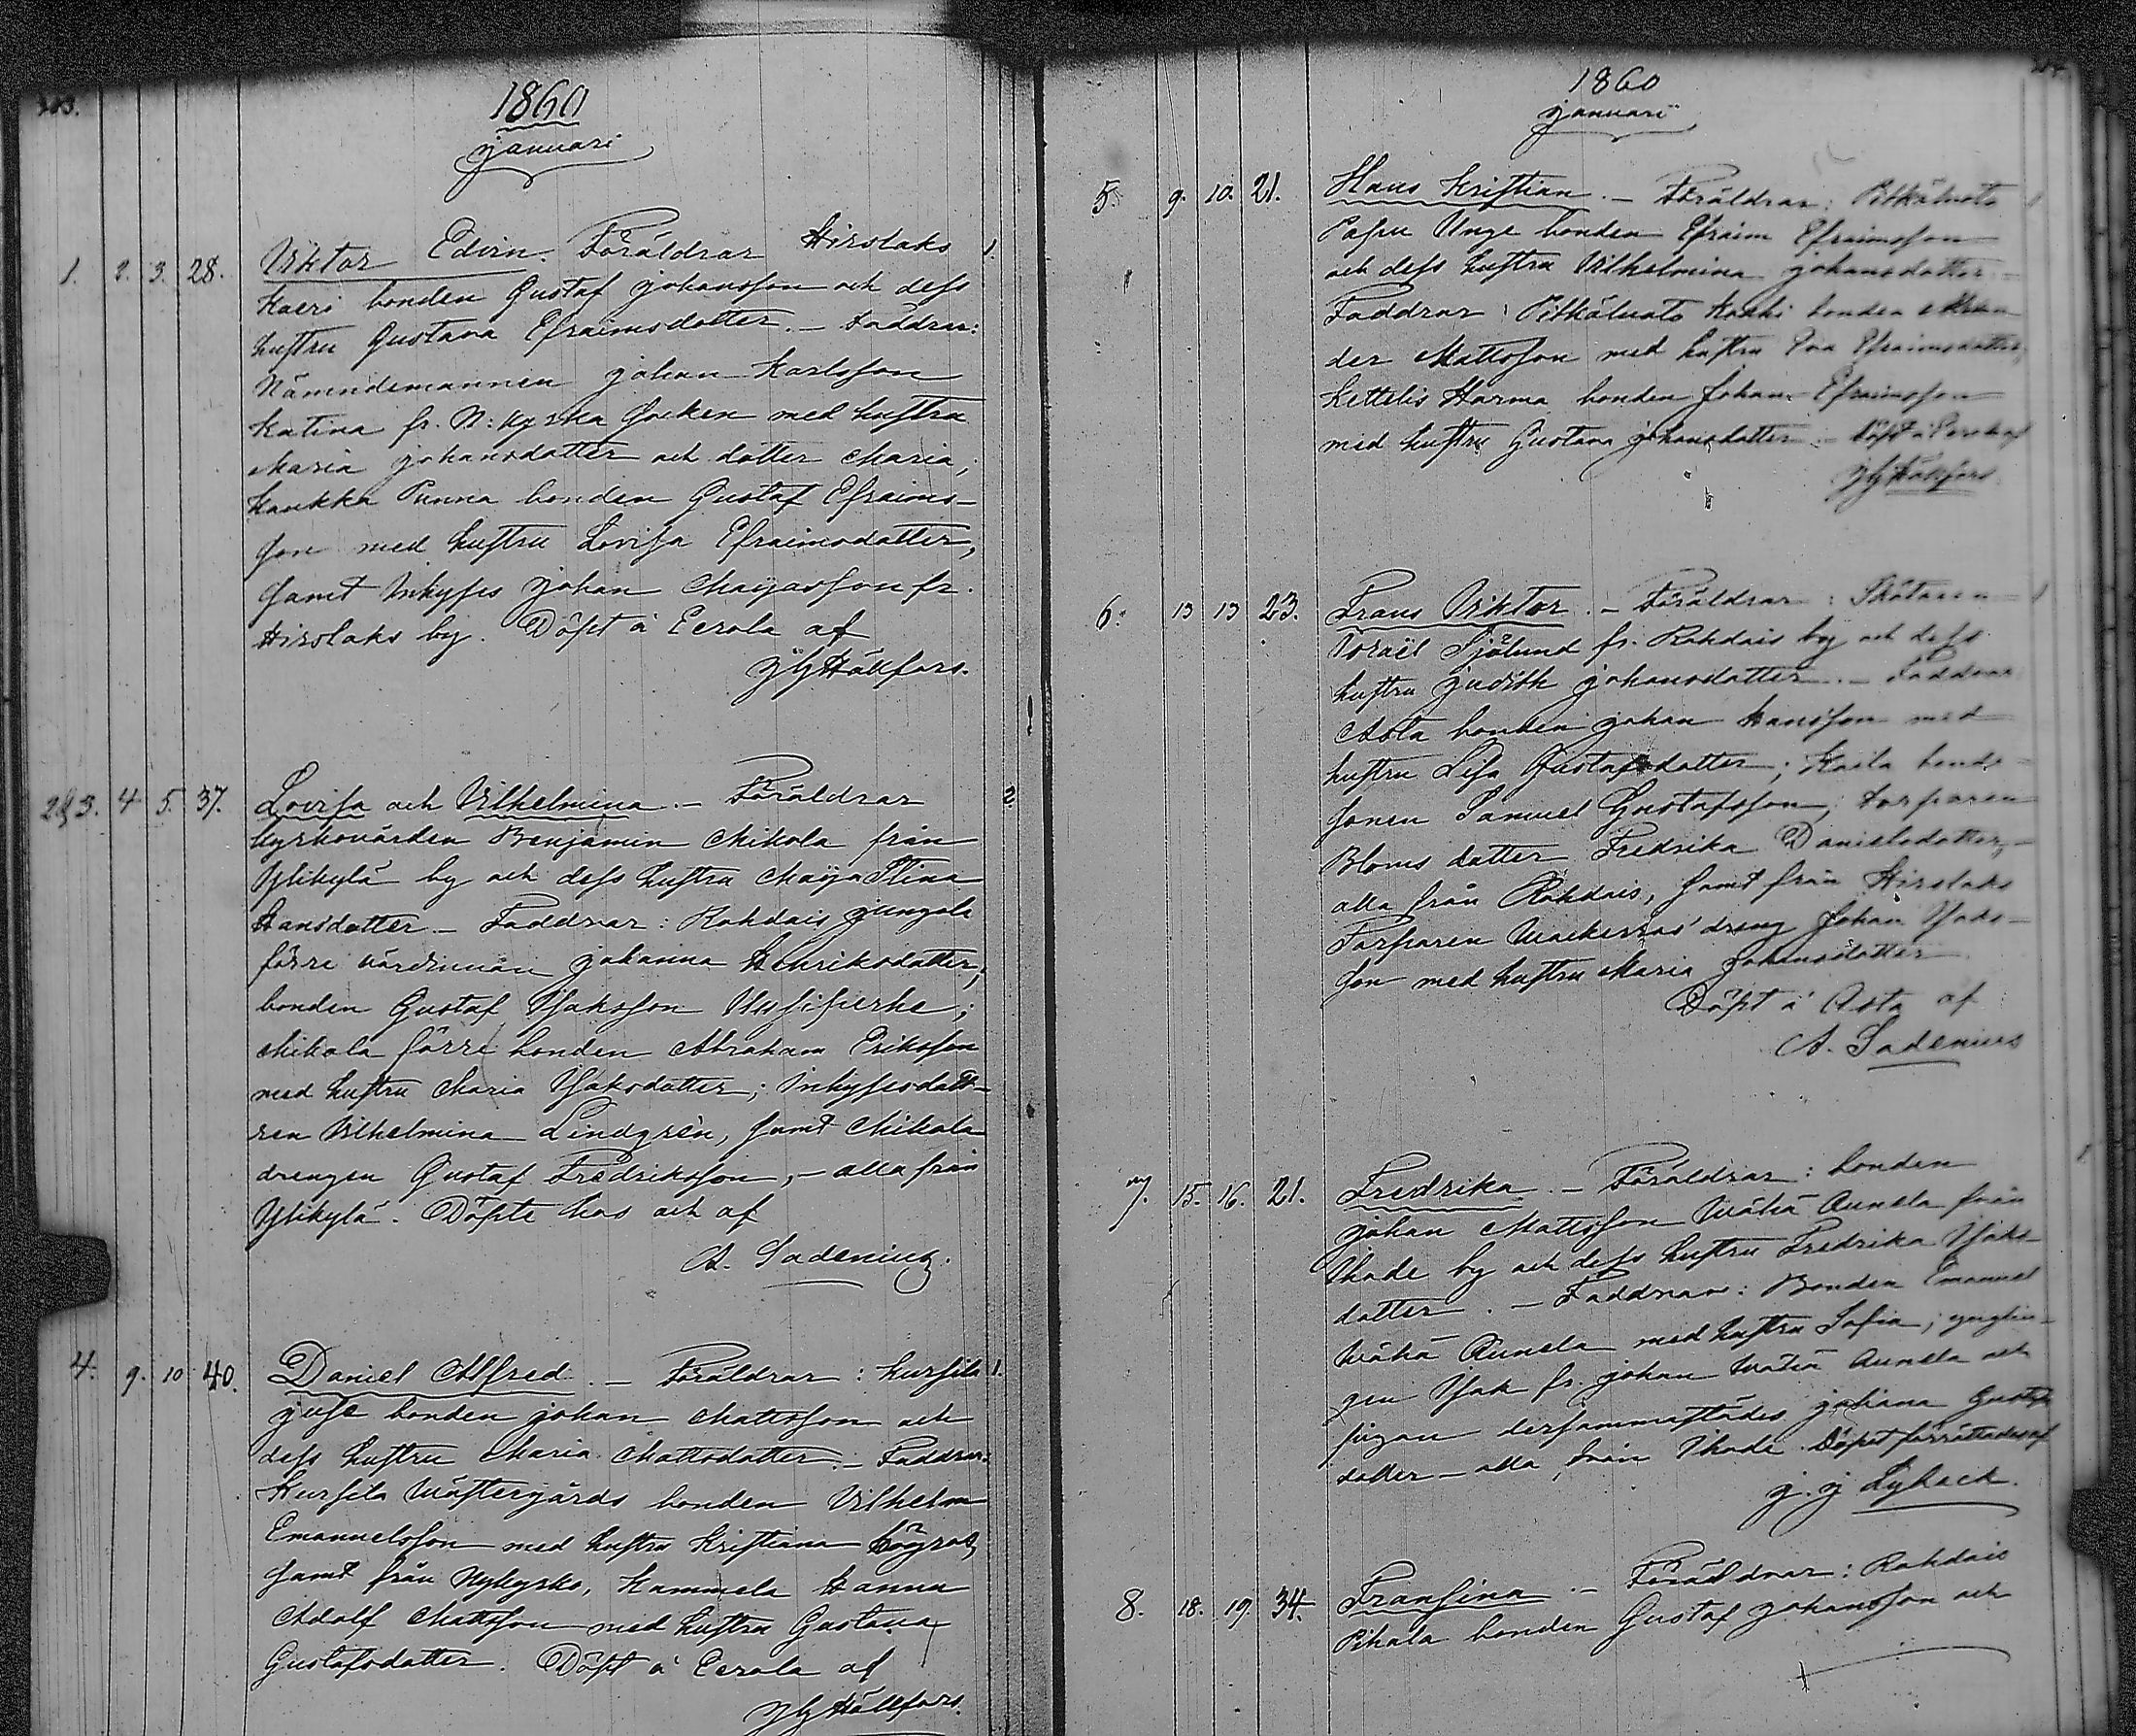 1860
Januari
1. 2. 3. 28. Viktor Edvin. Föräldrar Hirslaks 1.
Kaeri bonden Gustaf Johansson och dess
hustru Gustava Efraimsdotter. – Faddrar:
Nämndemannen Johan Karlsson
Katina fr. N:kyrka socken med hustru
Maria Johansdotter och dotter Maria,
Kaukka Punna bonden Gustaf Efraims-
son med hustru Lovisa Efraimsdotter,
samt Inhyses Johan Majasson fr.
Hirslaks by. Döpt å Eerola af
Hällfors.
2 & 3. 4 5. 37. Lovisa och Vilhelmina. – Föräldrar 2.
Kyrkovärden Benjamin Mikola från
Ylikylä by och dess hustru Maja Stina
Hansdotter – Faddrar: Rohdais Jungola
förre värdinnan Johanna Henriksdotter,
bonden Gustaf Isaksson Uusipierhe;
Mikola förre bonden Abraham Eriksson
med hustru Maria Isaksdotter; Inhysesdott-
ren Vilhelmina Lindgrén, samt Mikola
drengen Gustaf Fredriksson, – alla från
Ylikylä. Döpte hos och af
A. Sadenius.
4. 9. 10 40. Daniel Alfred. – Föräldrar: Kursila 1.
Juse bonden Johan Mattsson och
dess hustru Maria Mattsdotter. – Faddrar:
Kursila Wästergårds bonden Vilhelm
Emanuelsson med hustru Kristiana
samt från Nykyrko, Kammela Hannu
Adolf Mattsson med hustru Gustava
Gustafsdotter. Döpt å Eerola af
Hällfors.
1860
Januari
5. 9. 10. 21. Hans Kristian. – Föräldrar: Pitkäluoto 1
Unge bonden Efraim Efraimsson
och dess hustru Vilhelmina Johansdotter –
Faddrar: Pitkäluoto bonden
der Mattsson med hustru Eva Efraimsdotter,
Kettelis Harma bonden Johan Efraimsson
med hustru Gustava Johansdotter. – Döpt å Eerola af
Hällfors
6. 13 13 23. Frans Viktor. – Föräldrar: 1
Israël Sjölund fr. Rohdais by och dess
hustru Judith Johansdotter. – Faddrar
Asta bonden Johan Hansson med
hustru Lisa Gustafsdotter; Kaila bonde-
sonen Samuel Gustafsson; torparen
Bloms dotter Fredrika Danielsdotter, –
alla från Rohdais, samt från Hirslaks
Torparen dreng Johan Isaks-
son med hustru Maria Johansdotter
Döpt å Asta af
A. Sadenius
7. 15. 16. 21. Fredrika. – Föräldrar: bonden 1
Johan Mattsson Wähä Aunela från
Ihode by och dess hustru Fredrika Isaks-
dotter. – Faddrar: Bonden Emanuel
Wähä Aunela med hustru Sofia; ynglin-
gen Isak fr. Johan Wähä Aunela och
pigan dersammastädes Johana Gustafs
dotter – alla från Ihode. Döpet förrättades af
J. J. Lybeck.
8. 18. 19. 34. Fransina. – Föräldrar: Rohdais
Pihala bonden Gustaf Johansson och